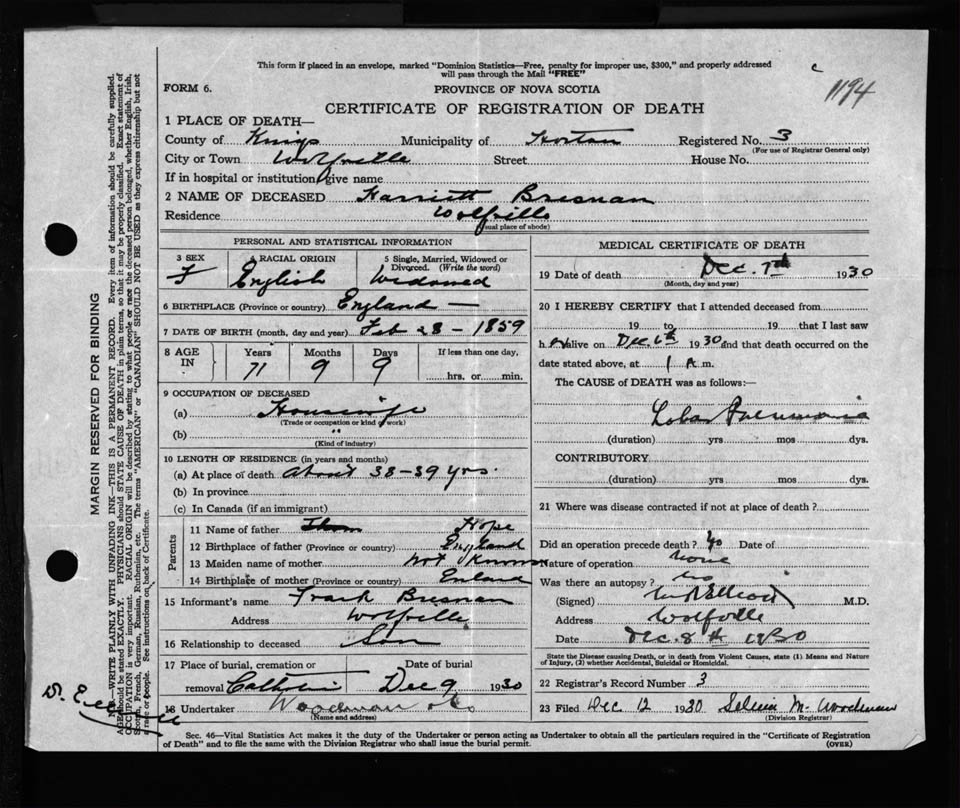 This form if placed in an envelope, marked "Dominion Statistics—Free, penalty for improper use, $300," and properly addressed
will pass through the Mail "FREE"
c
1194
FORM 6.
PROVINCE OF NOVA SCOTIA
CERTIFICATE OF REGISTRATION OF DEATH
1 PLACE OF DEATH—
County of Kings Municipality of Horton Registered No. 3
(For use of Registrar General only)
City or Town Wolfville Street House No.
If in hospital or institution give name
2 NAME OF DECEASED Harriett Bresnan
Residence Wolfville
(usual place of abode)
PERSONAL AND STATISTICAL INFORMATION
3 SEX 4 RACIAL ORIGIN 5 Single, Married, Widowed or Divorced. (Write the word)
F English Widowed
6 BIRTHPLACE (Province or country) England —
7 DATE OF BIRTH (month, day and year) Feb 28 - 1859
8 AGE IN Years Months Days If less than one day,
71 9 9 hrs. or min.
9 OCCUPATION OF DECEASED
(a) Housewife
(Trade or occupation or kind of work)
(b) "
(Kind of industry)
10 LENGTH OF RESIDENCE (in years and months)
(a) At place of death About 38-39 yrs.
(b) In province
(c) In Canada (if an immigrant)
Parents
11 Name of father Hope
12 Birthplace of father (Province or country) England
13 Maiden name of mother Not Known
14 Birthplace of mother (Province or country) Enland
15 Informant's name Frank Bresnan
Address Wolfville
16 Relationship to deceased Son
17 Place of burial, cremation or removal Catholic Date of burial Dec 9 1930
18 Undertaker Woodman
(Name and address)
MEDICAL CERTIFICATE OF DEATH
19 Date of death Dec. 7th 1930
(Month, day and year)
20 I HEREBY CERTIFY that I attended deceased from
19 to 19 that I last saw
h er alive on Dec 6th 1930 and that death occurred on the
date stated above, at 1 A. m.
The CAUSE of DEATH was as follows:—
Lobar Pneumonia
(duration) yrs mos dys.
CONTRIBUTORY
(duration) yrs mos dys.
21 Where was disease contracted if not at place of death?
Did an operation precede death? No Date of
Nature of operation None
Was there an autopsy? No
(Signed) M.D.
Address Wolfville
Date Dec. 8th 1930
State the Disease causing Death, or in death from Violent Causes, state (1) Means and Nature
of Injury, (2) whether Accidental, Suicidal or Homicidal.
22 Registrar's Record Number 3
23 Filed Dec 12 1930 M. Woodman
(Division Registrar)
Sec. 46—Vital Statistics Act makes it the duty of the Undertaker or person acting as Undertaker to obtain all the particulars required in the "Certificate of Registration
of Death" and to file the same with the Division Registrar who shall issue the burial permit.
(OVER)
MARGIN RESERVED FOR BINDING
N.B.—WRITE PLAINLY WITH UNFADING INK—THIS IS A PERMANENT RECORD. Every item of information should be carefully supplied.
AGE should be stated EXACTLY. PHYSICIANS should STATE CAUSE OF DEATH in plain terms, so that it may be properly classified. Exact statement of
OCCUPATION is very important. RACIAL ORIGIN will be described by stating to what people or race the deceased person belonged, whether English, Irish,
Scotch, French, German, Russian, Ruthenian, etc. The terms "AMERICAN" or "CANADIAN" SHOULD NOT BE USED as they express citizenship but not
a race or people. See instructions on back of Certificate.